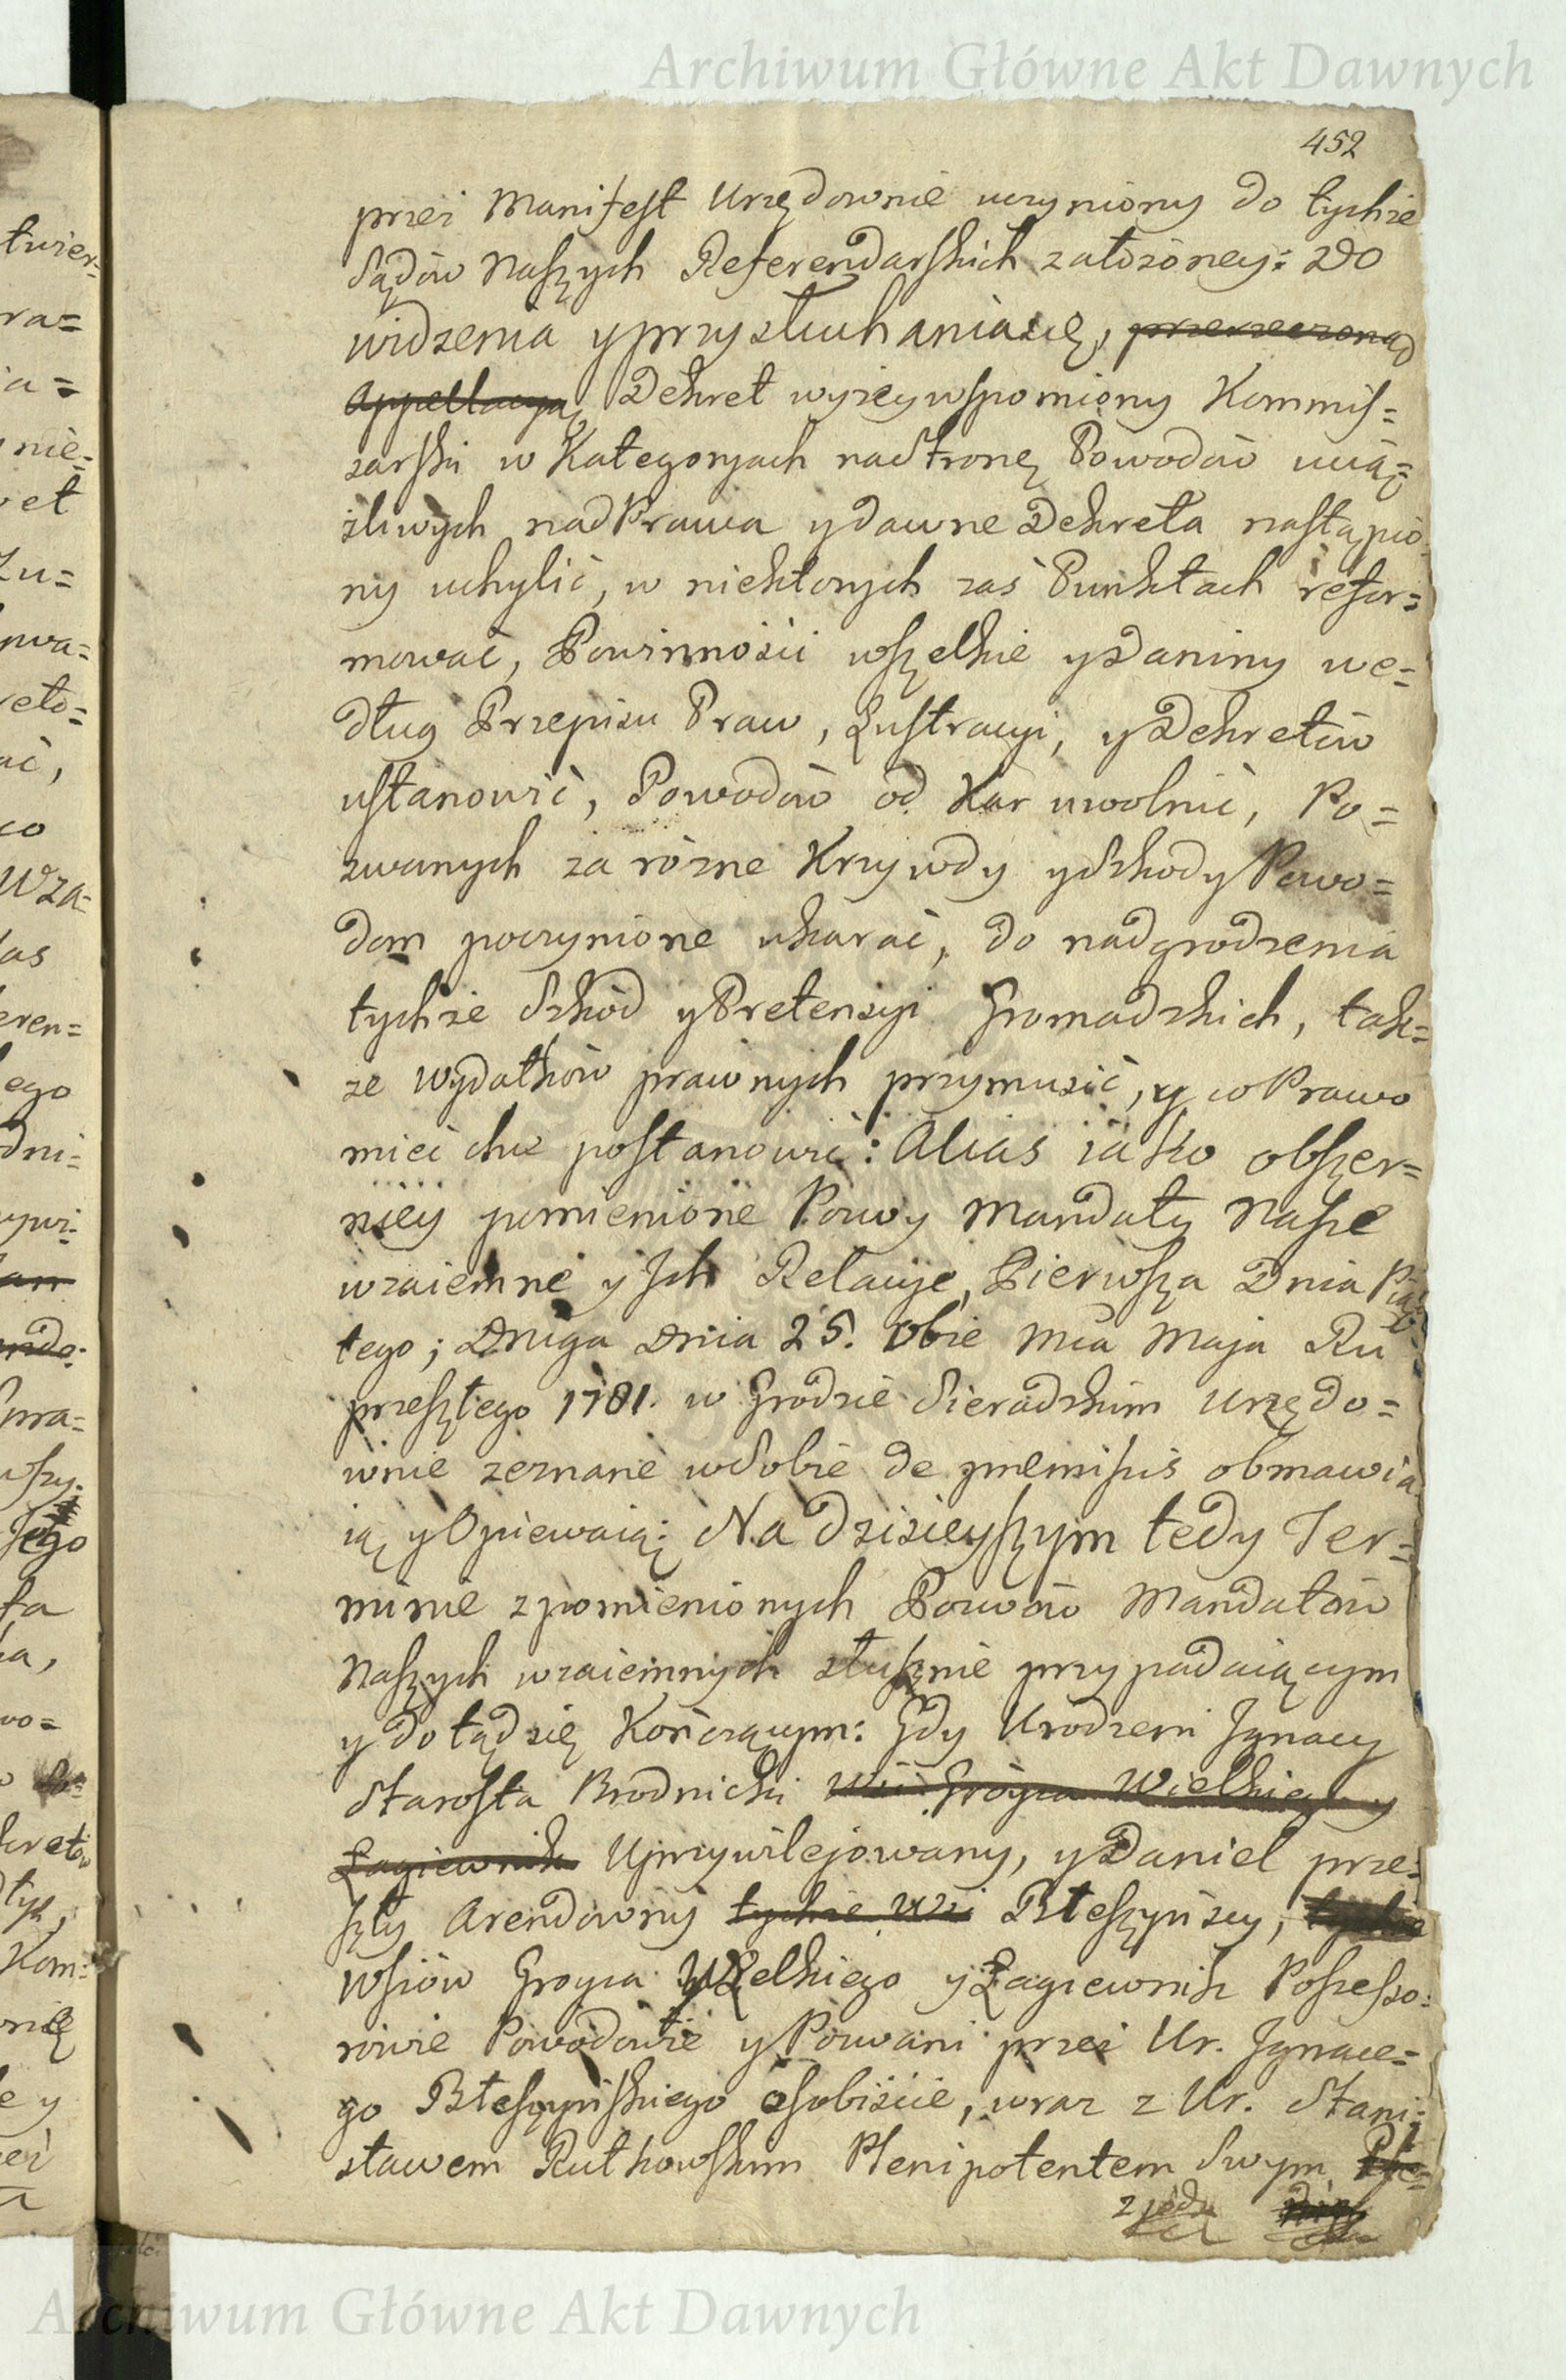 Archiwum Główne Akt Dawnych
452
przez Manifest Urzędownie uczyniony do tychże
Sądów Naszych Referendarskich założoney: Do
widzenia y przysłuchania się, przerzeczoną
Appellacyą Dekret wyżey wspomniony Kommis=
sarski w Kategoryach na Stronę Powodów ucią=
żliwych nad Prawa y dawne Dekreta nastąpio
ny uchylić, w niektorych zaś Punktach refor=
mować, Powinności wszelkie y Daniny we=
dług Przepisu Praw, Lustracyi, y Dekretów
ustanowić, Powodów od Kar uwolnić, Po=
zwanych za rózne Krzywdy y Szkody Powo=
dom poczynione ukarać, do nadgrodzenia
tychże Szkód y Pretensyi Gromadzkich, tak=
ze wydatków prawnych przymusić, y w Prawo
mieć chce postanowić: Alias iako obszer=
niey pomienione Pozwy Mandaty Nasze
wzaiemne y Jch Relacye, Pierwsza Dnia Pią
tego; Druga Dnia 25. Obie Mca Maja Ru
przeszłego 1781. w Grodzie Sieradzkim Urzędo=
wnie zeznane w Sobie de praemissis obmawia
ią y Opiewaią: Na dzisieyszym tedy Ter=
minie z pomienionych Pozwów Mandatów
Naszych wzaiemnych słusznie przypadaiącym
y do tąd się Kończącym: Gdy Urodzeni Jgnacy
Starosta Brodnicki Wsi Groyca Wielkiego y
Łagiewnik Uprzywilejowany, y Daniel prze=
szły Arendowny tychże Wsi Błeszyńscy, tychże
Wsiów Groyca Wielkiego y Łagiewnik Possesso=
rowie Powodowie y Pozwani przez Ur. Jgnace=
go Błeszyńskiego osobiście, wraz z Ur. Stani=
sławem Rutkowskim Plenipotentem Swym
Archiwum Główne Akt Dawnych